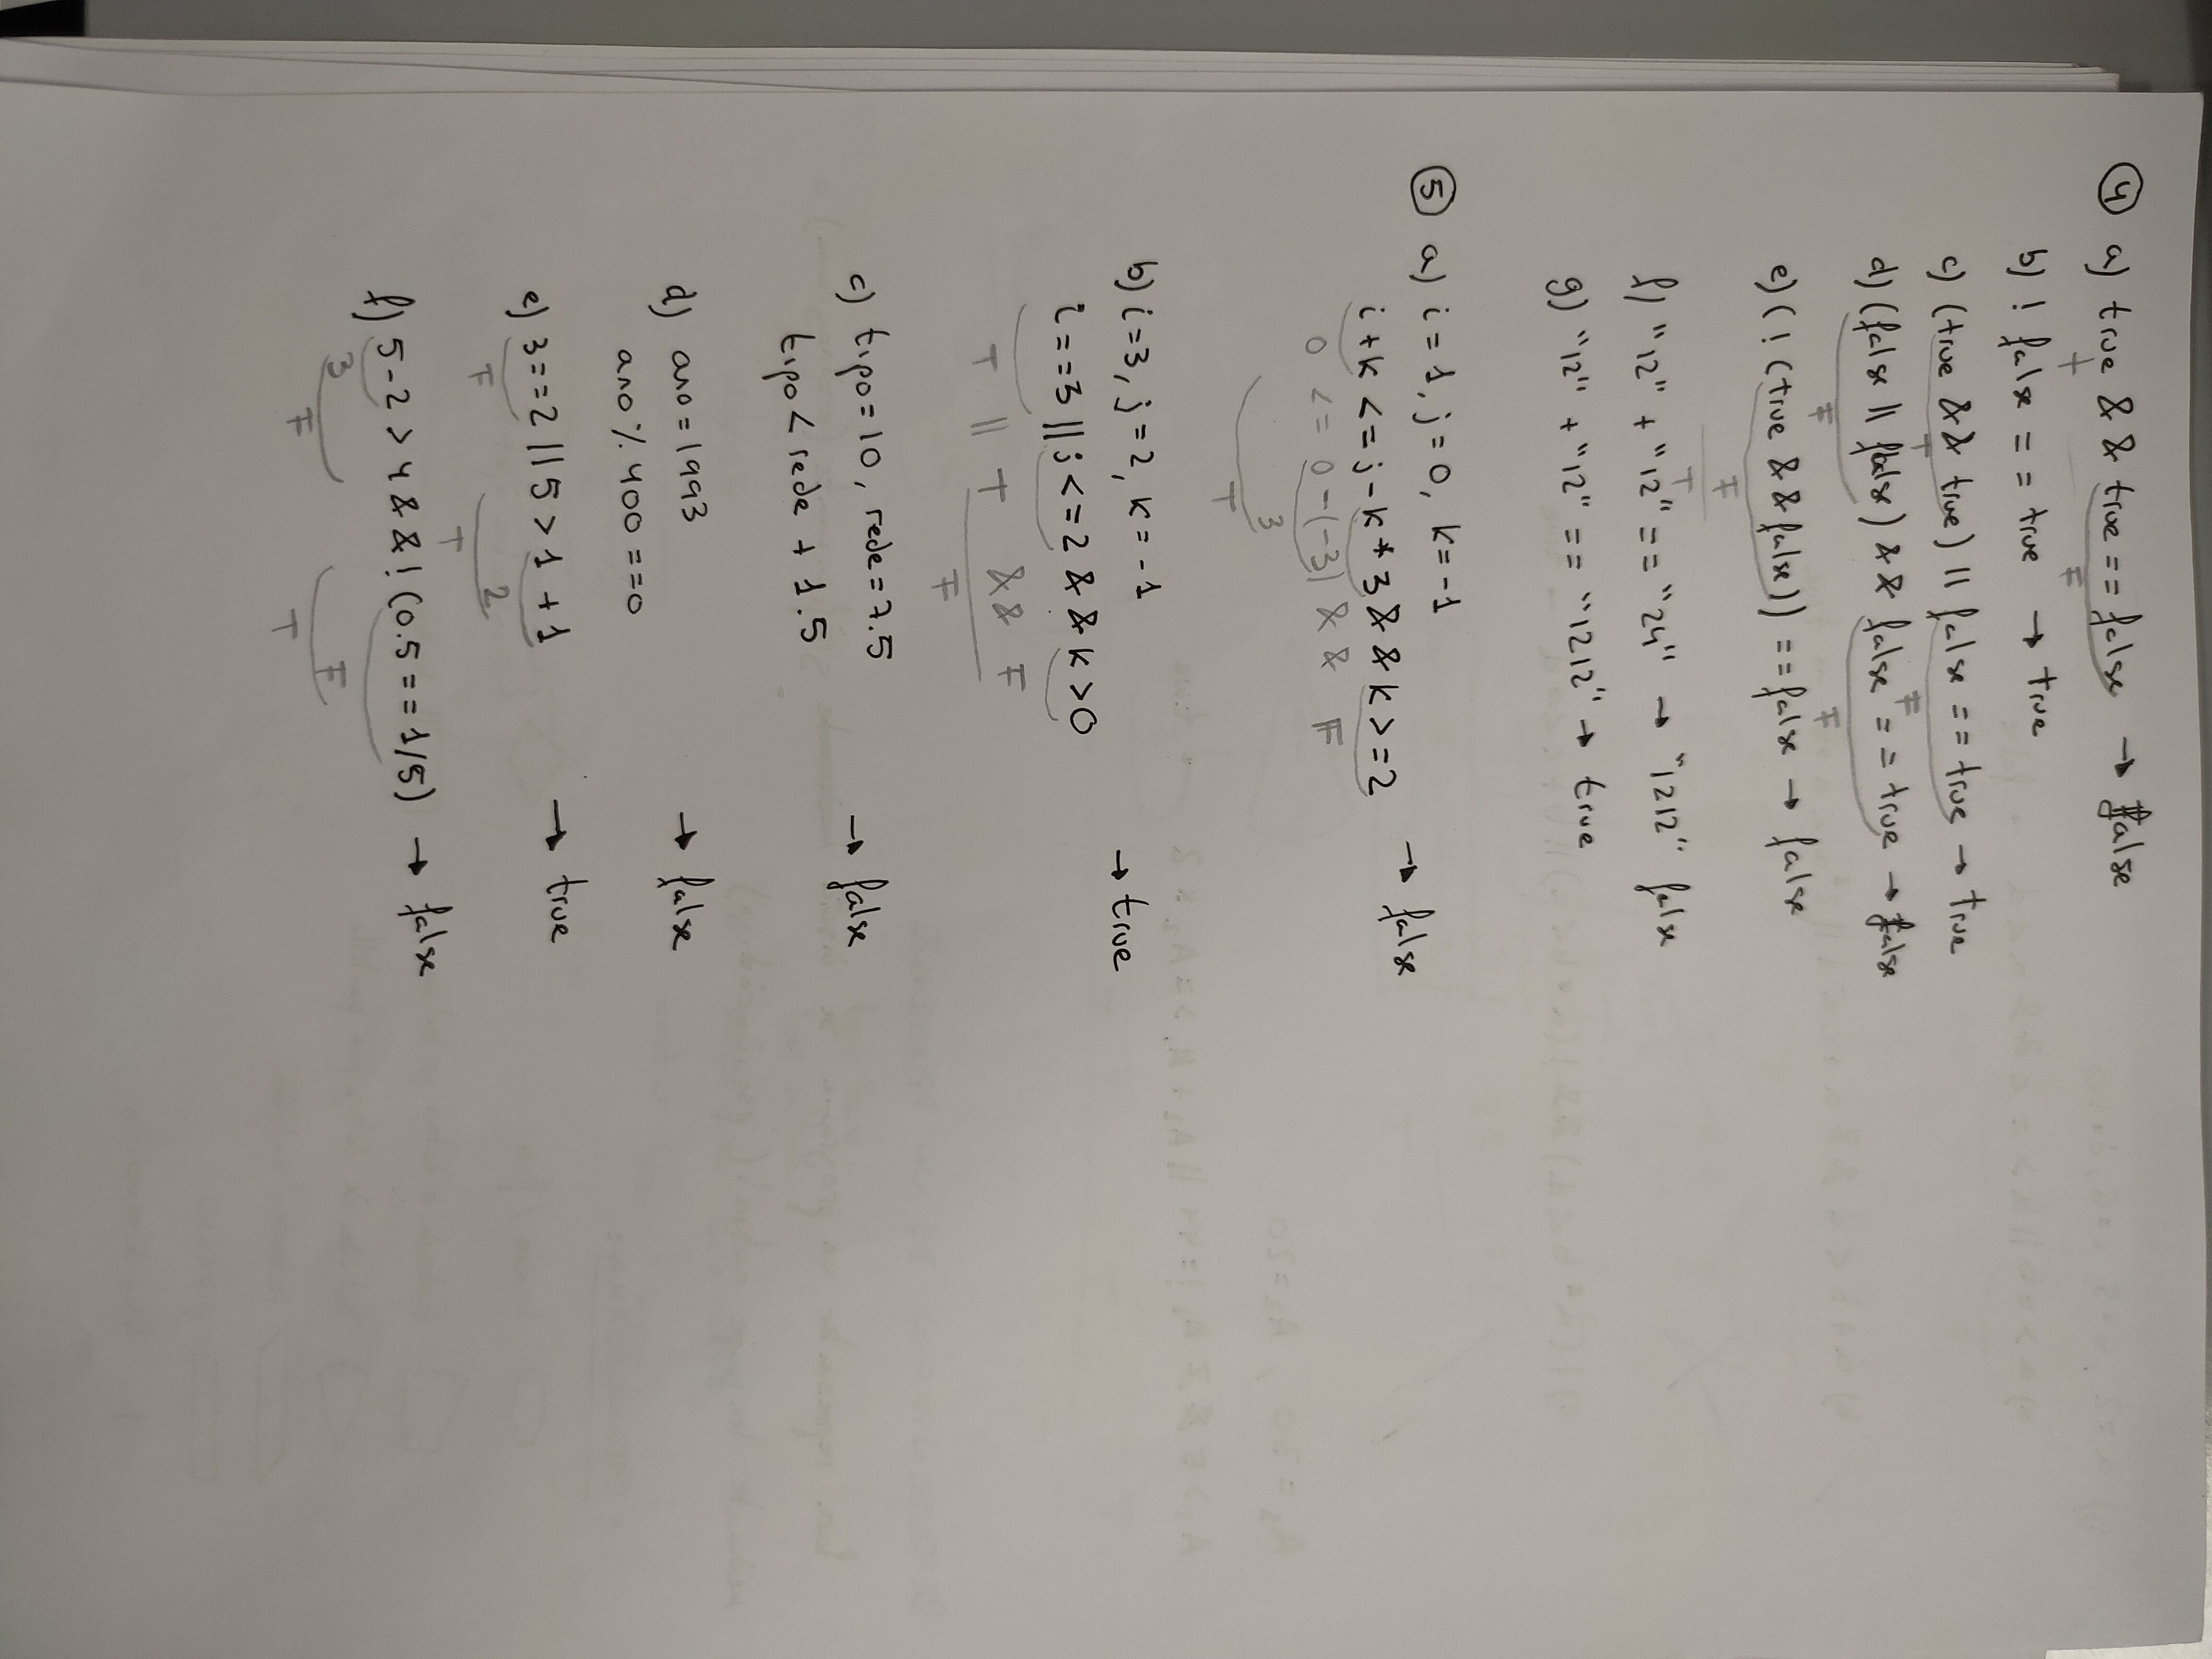 ④ a) true && true == false → false
T F
b) ! false == true → true
c) (true && true) || false == true → true
T F
d) (false || false) && false == true → false
F F
e) (! (true && false)) == false → false
F
T
f) "12" + "12" == "24" → "1212" false
g) "12" + "12" == "1212" → true
⑤ a) i = 1, j = 0, k = -1
i + k <= j - k * 3 && k >= 2 → false
0 <= 0 - (-3) && F
3
T
b) i = 3, j = 2, k = -1
i == 3 || j <= 2 && k > 0 → true
T || T && F
F
c) tipo = 10, rede = 7.5
tipo < rede + 1.5 → false
d) ano = 1993
ano % 400 == 0 → false
e) 3 == 2 || 5 > 1 + 1 → true
F 2
T
f) 5 - 2 > 4 && ! (0.5 == 1/5) → false
3 F
F T